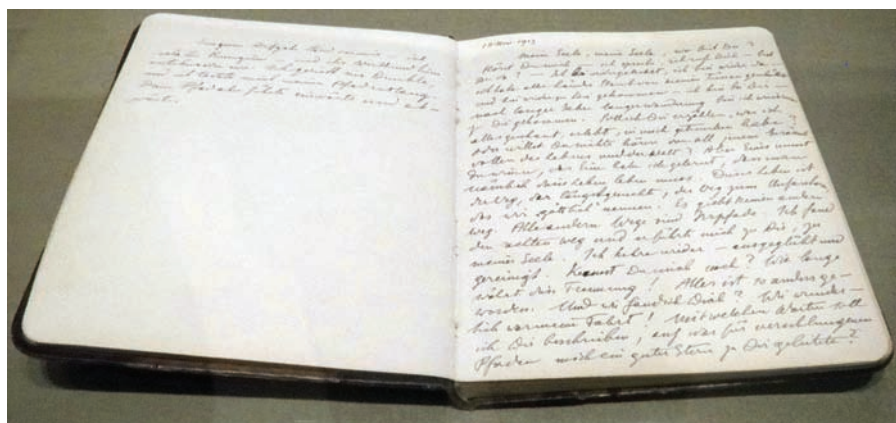 Aufgabe
und
Ich geriet ins Dunkle
und ich tastete mich meinen Pfad entlang.
Pfad aber führte einwärts und ab-
wärts.
12 Nov. 1913
Meine Seele, meine Seele, wo bist Du?
Hörst Du mich — ich spreche, ich rufe Dich — bist
Du da? — Ich bin wiedergekehrt, ich bin wieder da —
ich habe aller Länder Staub von meinen Füssen geschüttelt
und bin zu Dir gekommen — ich bin bei Dir —
nach langer Jahre langer Wanderung bin ich wieder
zu Dir gekommen. Soll ich Dir erzählen, was ich
alles geschaut, erlebt, in mich getrunken habe?
Oder willst Du nichts hören von all jenem
des Lebens und der Welt? Aber Eines musst
Du wissen, das Eine habe ich gelernt, dass man
dieses Leben leben muss. Dieses Leben ist
der Weg, der längstgesuchte, der Weg zum Unfassbaren,
das wir göttlich nennen. Es giebt keinen andern
Weg. Alle andern Wege sind Irrpfade. Ich fand
den rechten Weg und er führte mich zu Dir, zu
meiner Seele. Ich kehre wieder — ausgeglüht und
gereinigt. Kennst Du mich noch? Wie lange
währte die Trennung! Alles ist so anders ge-
worden. Und wie fand ich Dich? Wie wunder-
lich war meine Fahrt! Mit welchen Worten soll
ich Dir beschreiben, auf was für verschlungenen
Pfaden mich ein guter Stern zu Dir geleitete?